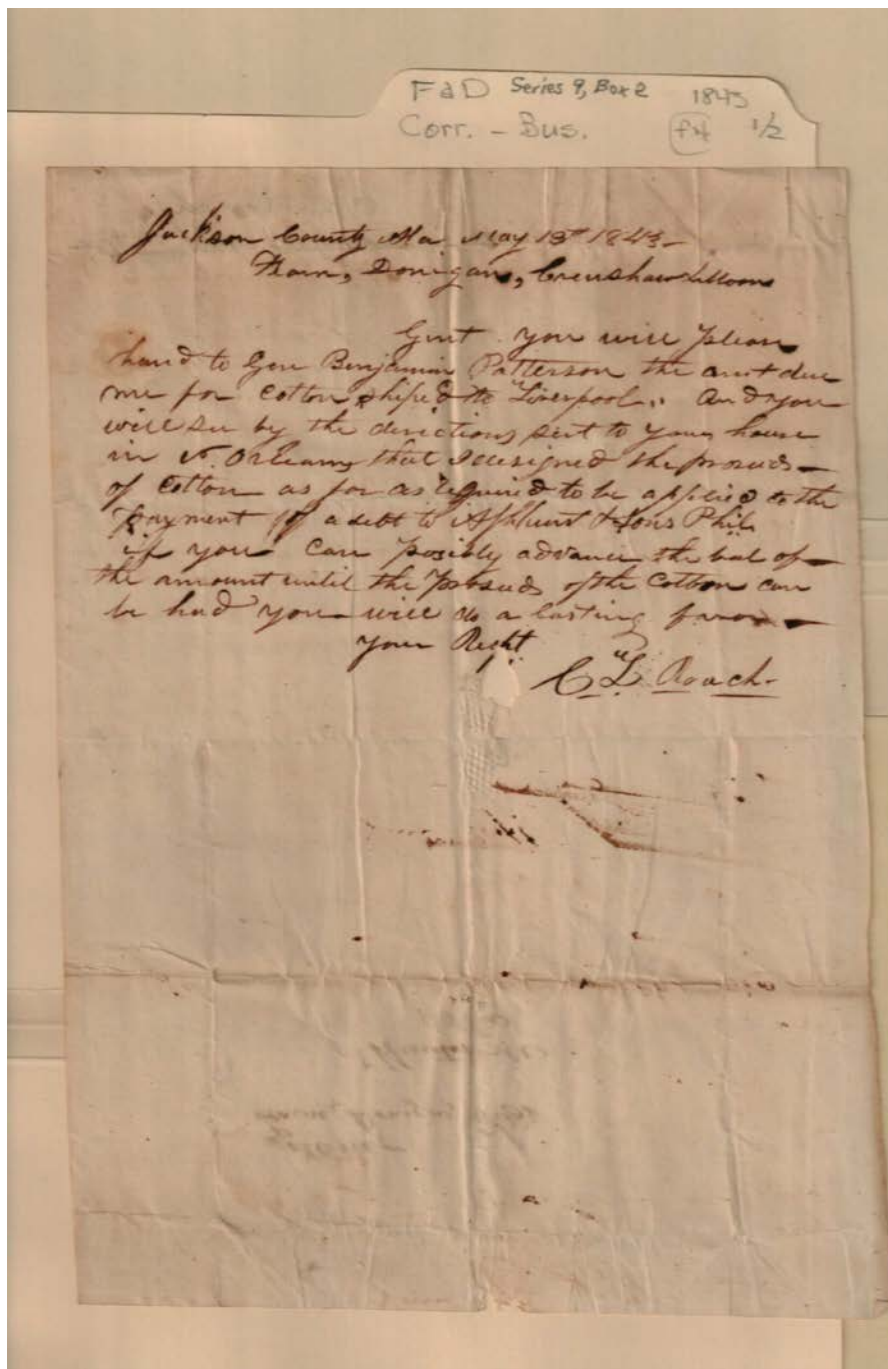 FaD Series 9, Box 2 1843
Corr. - Bus. 1/2
Jackson County Ala May 13th 1843
Fearn, Donigan, Crenshaw & Moore
Gent you will please
hand to Gen Benjamin Patterson the amt due
me for cotton shiped to "Liverpool" And you
will see by the directions sent to your house
in N. Orleans that I designed the proseeds
of Cotton as far as required to be applied to the
payment of a debt to Ashhurst & Sons Phil.
if you can posibly advance the bal of
the amount until the proseeds of the Cotton can
be had you will do a lasting favor
your Respt
C L Roach